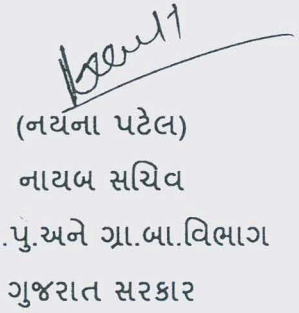 (નયના પટેલ)
નાયબ સચિવ
.પુ.અને ગ્રા.બા.વિભાગ
ગુજરાત સરકાર